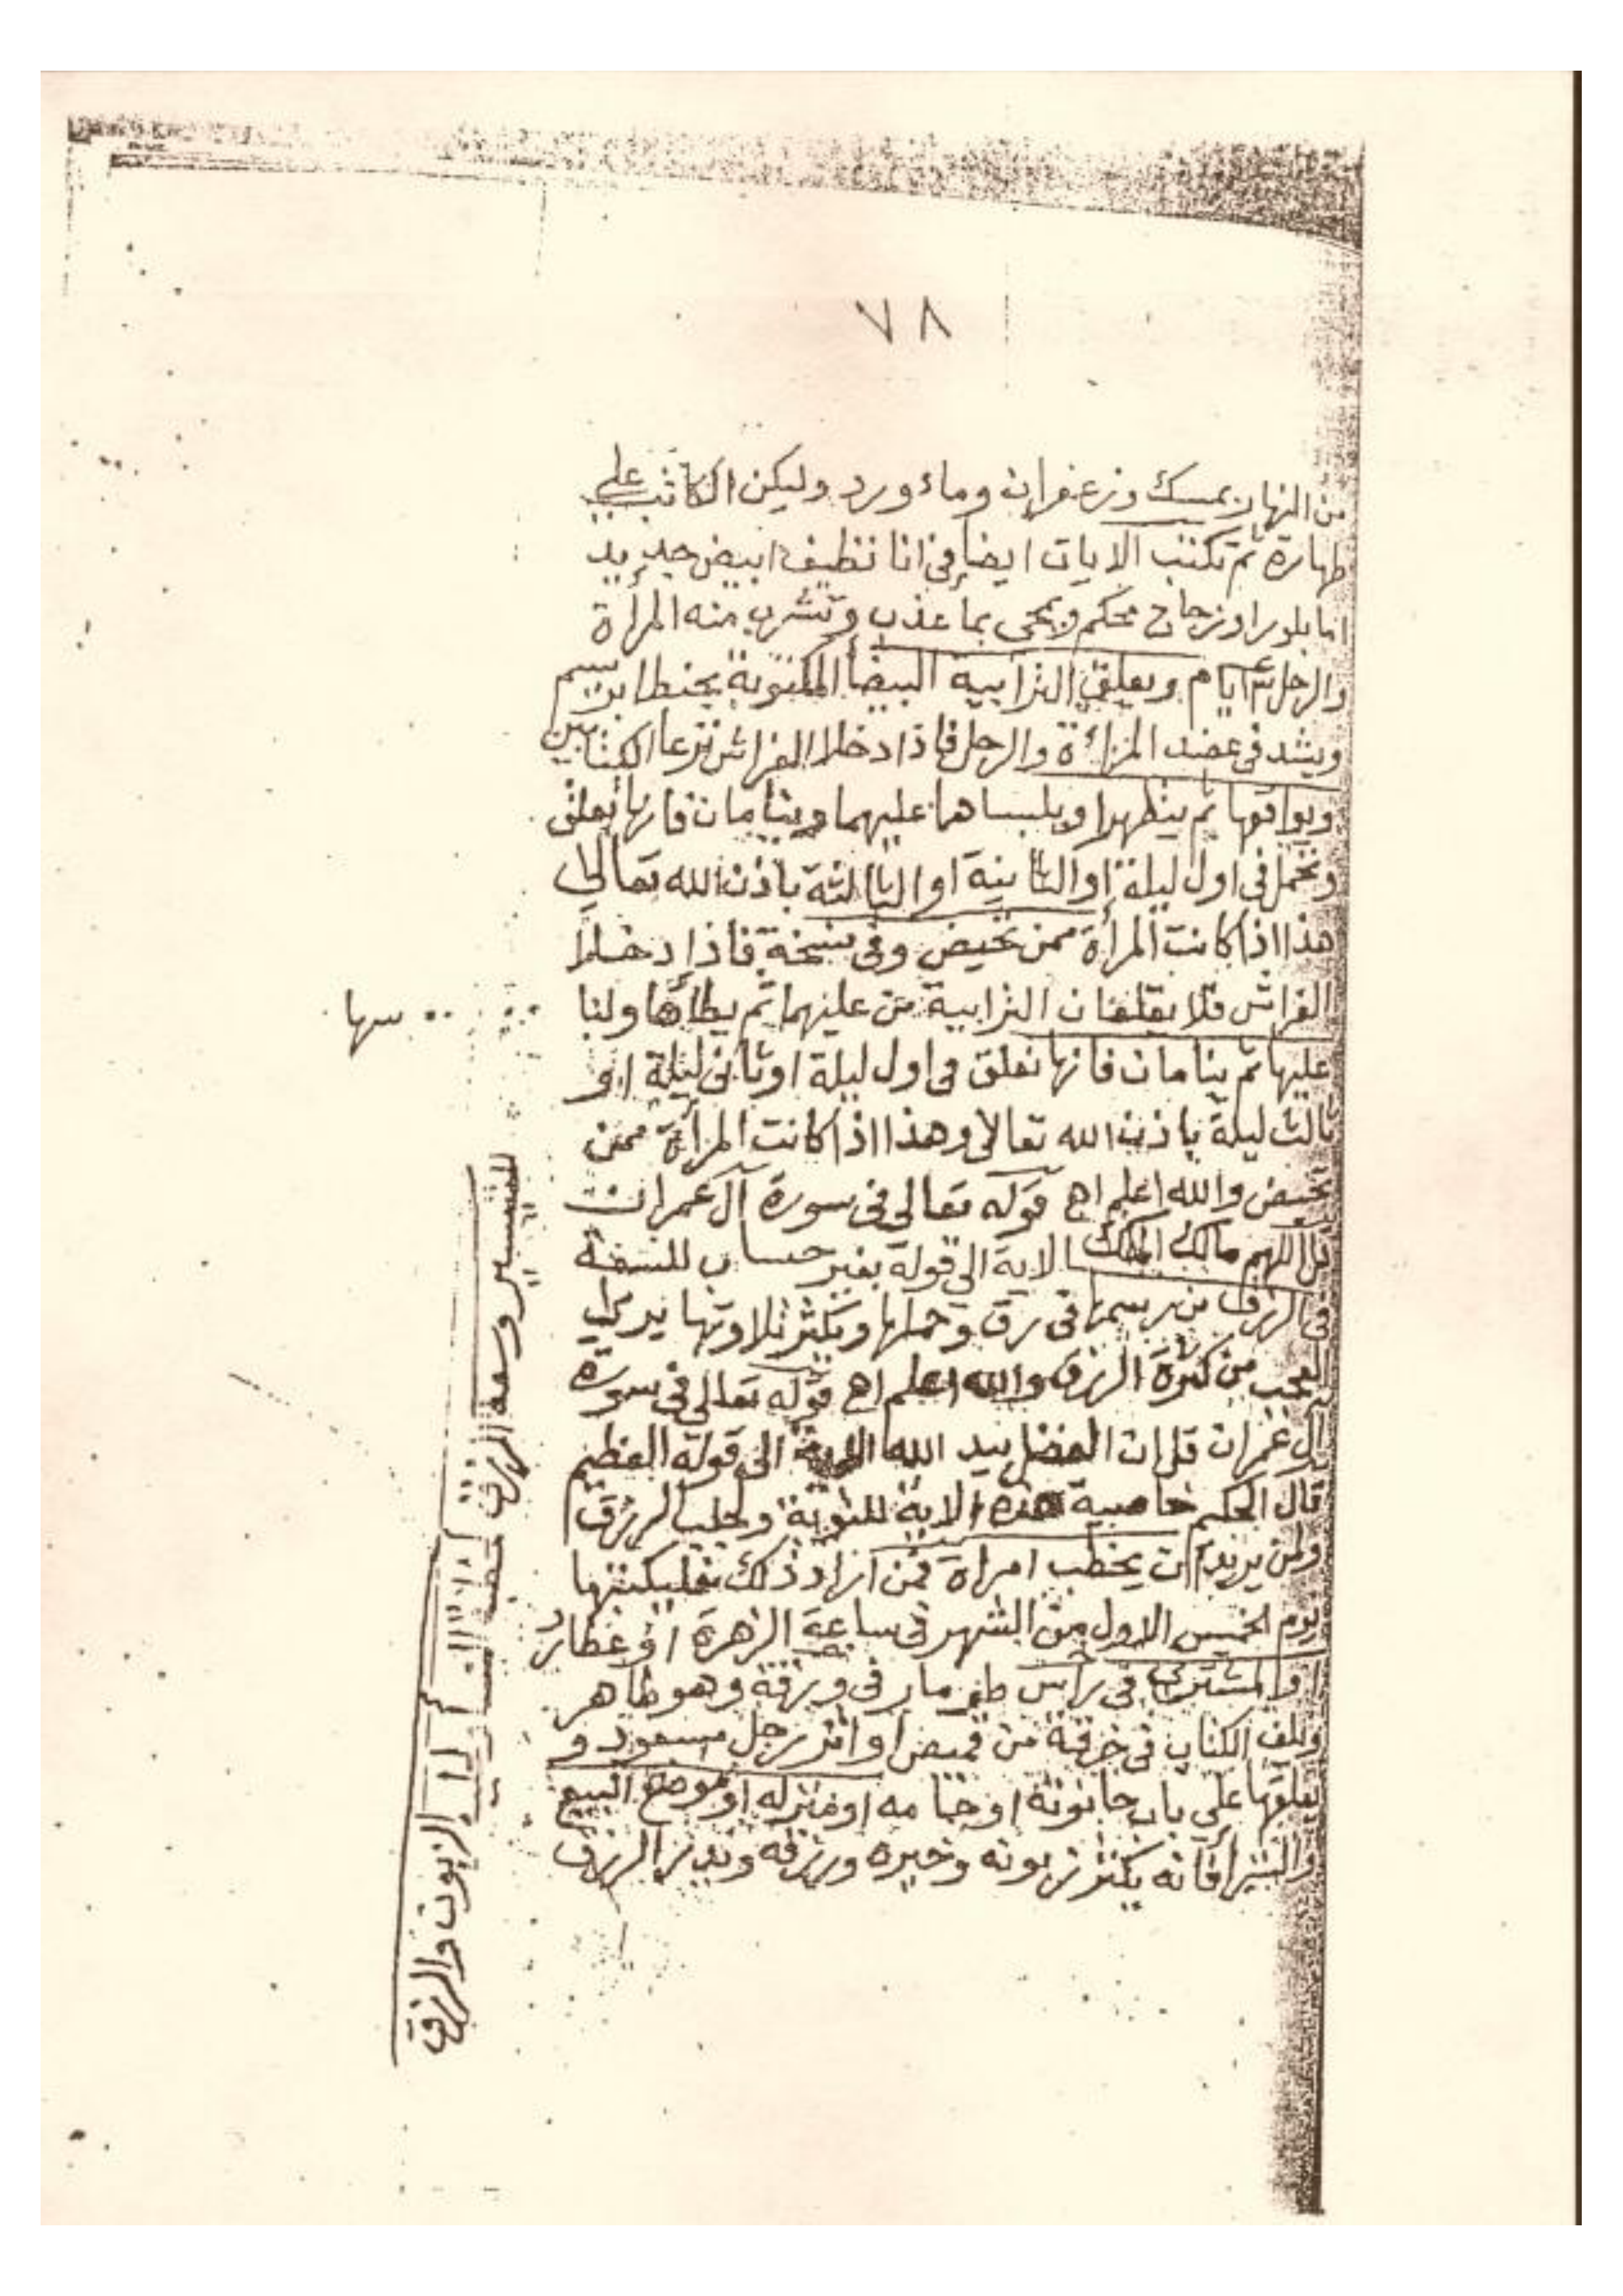 ٧٨
من النهار بمسك وزعفران وماء ورد وليكن الكاتب على
طهارة ثم تكتب الايات ايضا فى انا نظيف ابيض جديد
اما بلور او زجاج محكم ويمحى بما عذب وتشرب منه المرأة
والرجل ايام ويعلق البيضا المكتوبة بخيط ابريسم
ويشد فى عضد المرأة والرجل فاذا دخلا الفراش نزعا الكتابين
ويواقعها ثم يتطهرا ويلبساهما عليهما وينامان فانها تعلق
وتحمل فى اول ليلة او الثانية او الثالثة باذن الله تعالى
هذا اذا كانت المرأة ممن تحيض وفى نسخة فاذا دخلا
الفراش فلا يقلعان من عليهما ثم يطأها
عليها ثم ينامان فانها تعلق فى اول ليلة او ثانى ليلة او
ثالث ليلة باذن الله تعالى وهذا اذا كانت المرأة ممن
تحيض والله اعلم اهـ قوله تعالى فى سورة آل عمران
قل اللهم مالك الملك الاية الى قوله بغير حساب للسعة
فى الرزق من رسمها فى رق وحملها ويكثر تلاوتها يرى
العجب من كثرة الرزق والله اعلم اهـ قوله تعالى فى سورة
آل عمران قل ان الفضل بيد الله الاية الى قوله العظيم
قال الحكيم خاصية هذه الاية ولجلب الرزق
ولمن يريد ان يخطب امراة فمن اراد ذلك فليكتبها
يوم الخميس الاول من الشهر فى ساعة الزهرة او عطارد
او المشترى فى راس طومار فى ورقة وهو طاهر
ويلف الكتاب فى خرقة من قميص رجل مسعود و
يعلقها على باب حانوته او منزله او موضع البيع
والشرا فانه يكثر زبونه وخيره ورزقه وتدر الرزق
سها
للتيسير وسعة الرزق
الزبون والرزق